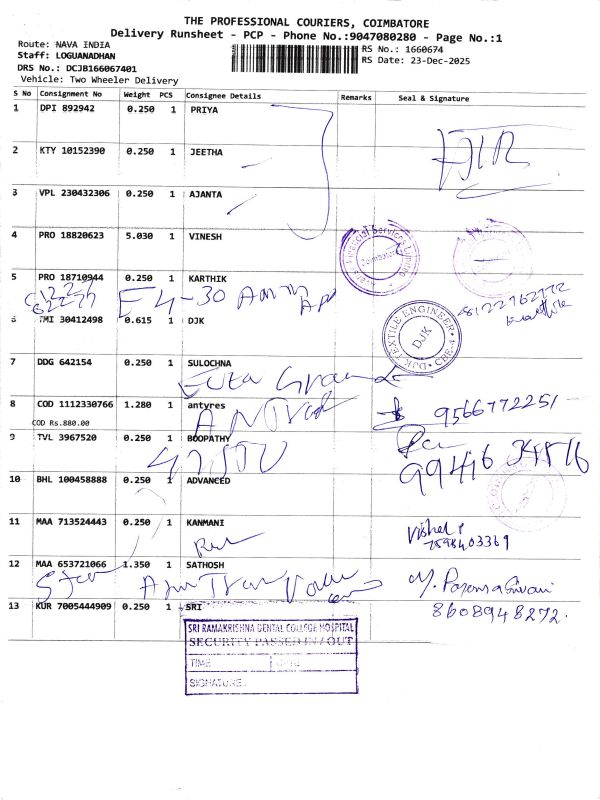 THE PROFESSIONAL COURIERS, COIMBATORE
Delivery Runsheet - PCP - Phone No.:9047080280 - Page No.:1
Route: NAVA INDIA
Staff: LOGUANADHAN
DRS No.: DCJB166067401
Vehicle: Two Wheeler Delivery
RS No.: 1660674
RS Date: 23-Dec-2025
S No Consignment No Weight PCS Consignee Details Remarks Seal & Signature
1 DPI 892942 0.250 1 PRIYA
2 KTY 10152390 0.250 1 JEETHA
3 VPL 230432306 0.250 1 AJANTA
4 PRO 18820623 5.030 1 VINESH
Financial Services Limited
Coimbatore
5 PRO 18710944 0.250 1 KARTHIK
E4-30
8122762772
6 TMI 30412498 0.615 1 DJK
DJK TEXTILE ENGINEER
DJK
CBE
7 DDG 642154 0.250 1 SULOCHNA
8 COD 1112330766 1.280 1 antyres
9566772251
COD Rs.880.00
9 TVL 3967520 0.250 1 BOOPATHY
10 BHL 100458888 0.250 1 ADVANCED
11 MAA 713524443 0.250 1 KANMANI
12 MAA 653721066 1.350 1 SATHOSH
13 KUR 7005444909 0.250 1 SRI
8608948272.
SRI RAMAKRISHNA DENTAL COLLEGE HOSPITAL
SECURITY PASSED IN / OUT
TIME
SIGNATURE